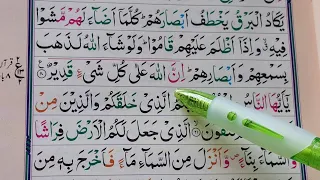 يَكَادُ الْبَرْقُ يَخْطَفُ اَبْصَارَهُمْ ؕ كُلَّمَاۤ اَضَآءَ لَهُمْ مَّشَوْا
فِيْهِ ۙ وَاِذَاۤ اَظْلَمَ عَلَيْهِمْ قَامُوْا ؕ وَلَوْ شَآءَ اللّٰهُ لَذَهَبَ
بِسَمْعِهِمْ وَاَبْصَارِهِمْ ؕ اِنَّ اللّٰهَ عَلٰى كُلِّ شَىْءٍ قَدِيْرٌ
يٰۤاَيُّهَا النَّاسُ الَّذِىْ خَلَقَكُمْ وَالَّذِيْنَ مِنْ
الَّذِىْ جَعَلَ لَكُمُ الْاَرْضَ فِرَاشًا
وَّالسَّمَآءَ بِنَآءً ۪ وَّاَنْزَلَ مِنَ السَّمَآءِ مَآءً فَاَخْرَجَ بِهٖ مِنَ